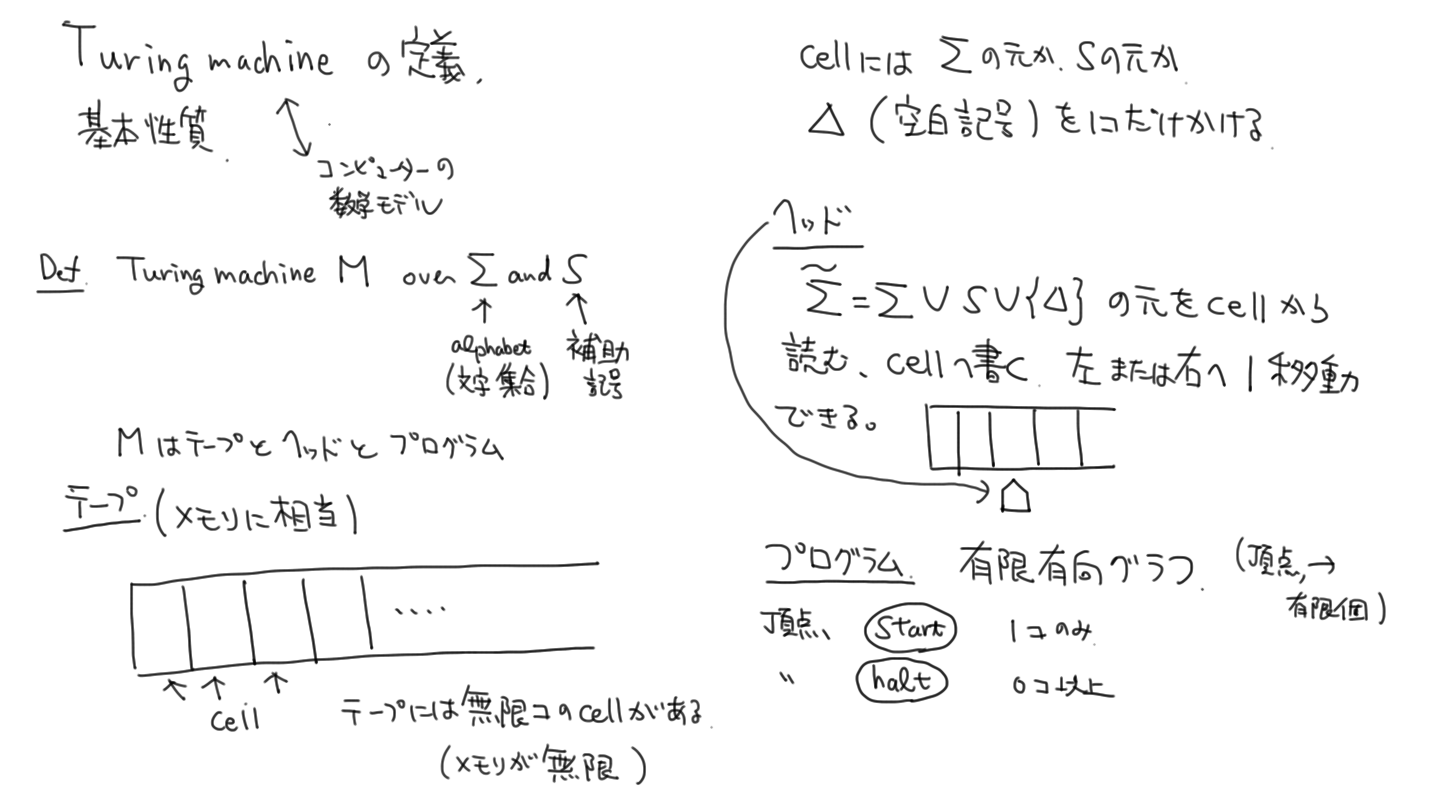 Turing machine の定義,
基本性質.
コンピューターの
数学モデル
Def. Turing machine M over Σ and S
alphabet 補助
(文字集合) 記号
Mはテープとヘッドとプログラム
テープ (メモリに相当)
‥‥
cell
テープには無限コのcellがある.
(メモリが無限)
cellには Σの元か, Sの元か
△ (空白記号) を1コだけかける.
ヘッド
Σ̃ = Σ ∪ S ∪ {△} の元をcellから
読む、cellへ書く 左または右へ1移動
できる。
プログラム. 有限有向グラフ. (頂点,→
有限個)
頂点、 start 1コのみ.
〃 halt 0コ以上